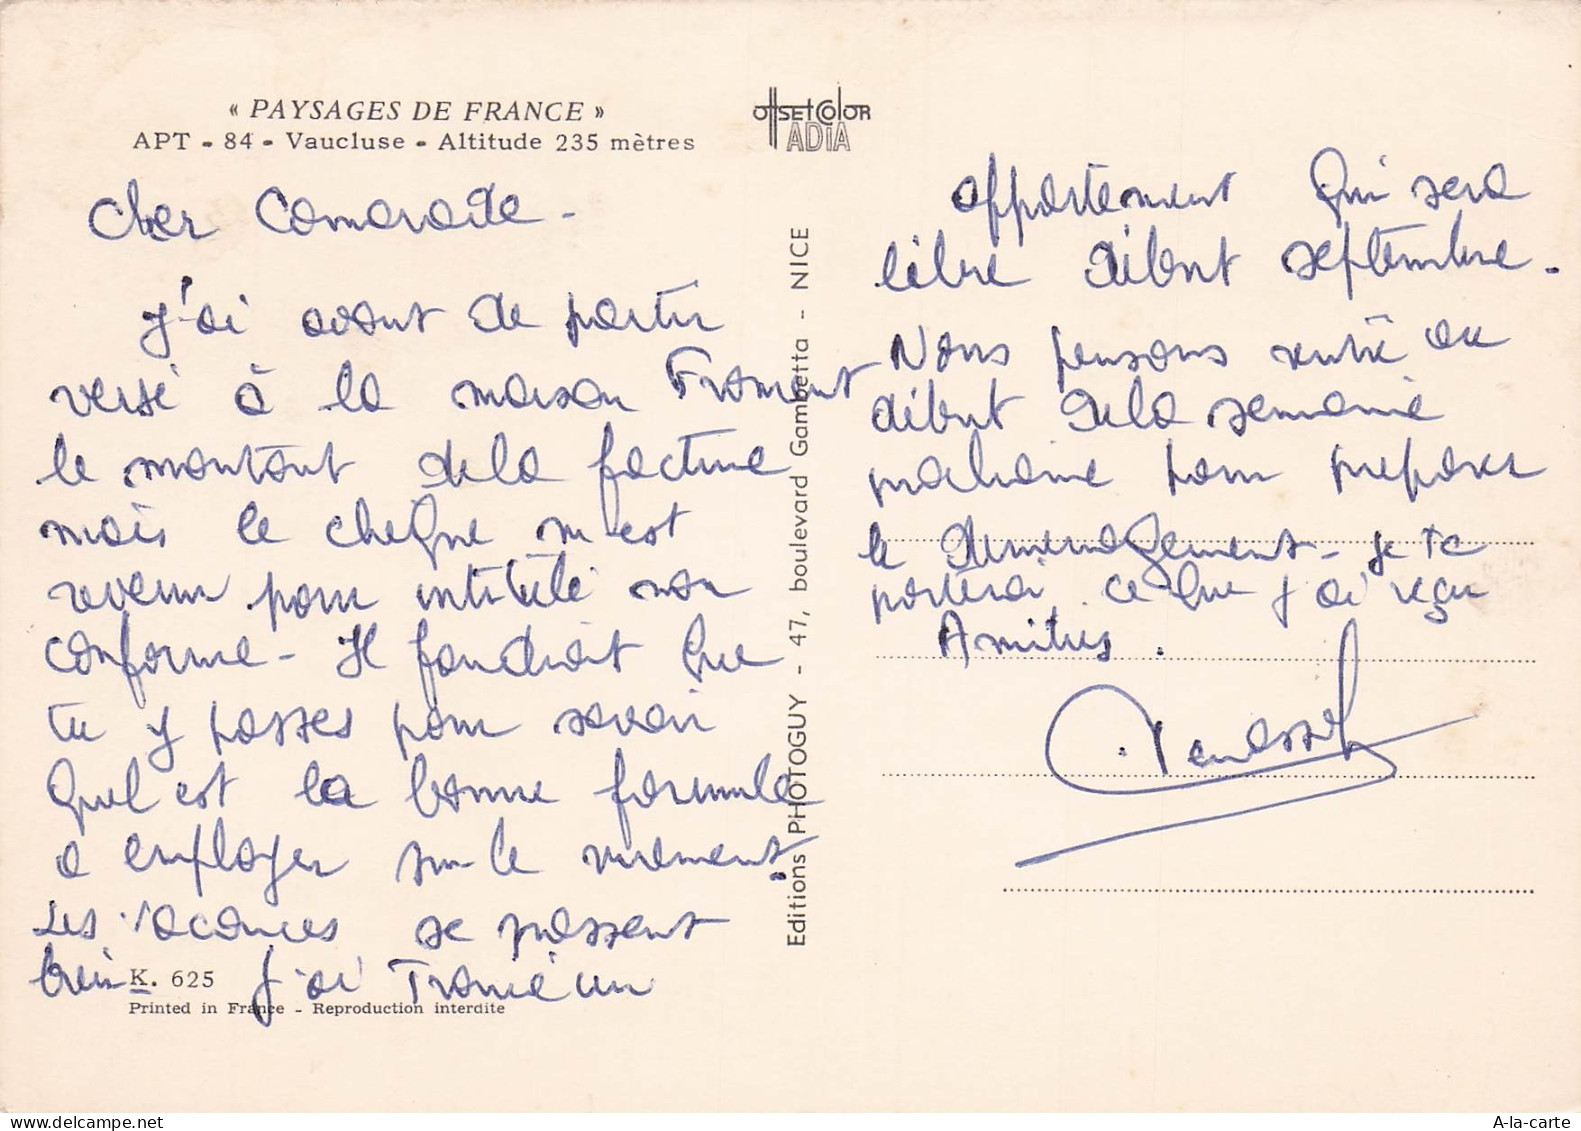 « PAYSAGES DE FRANCE »
APT - 84 - Vaucluse - Altitude 235 mètres
OffsetColor
ADIA
Cher Camarade -
J'ai avant de partir
versé à la maison Froment
le montant de la facture
mais le chèque m'est
revenu pour intitulé non
conforme - Il faudrait que
tu y passes pour savoir
quel est la bonne formule
a employer sur le virement.
Les vacances se passent
bien J'ai trouvé un
K. 625
Printed in France - Reproduction interdite
Editions PHOTOGUY - 47, boulevard Gambetta - NICE
appartement qui sera
libre début septembre.
Nous pensons rentré au
début de la semaine
prochaine pour preparer
le demenagement - Je te
porterai ce que j'ai reçu
Amitiés.
A-la-carte